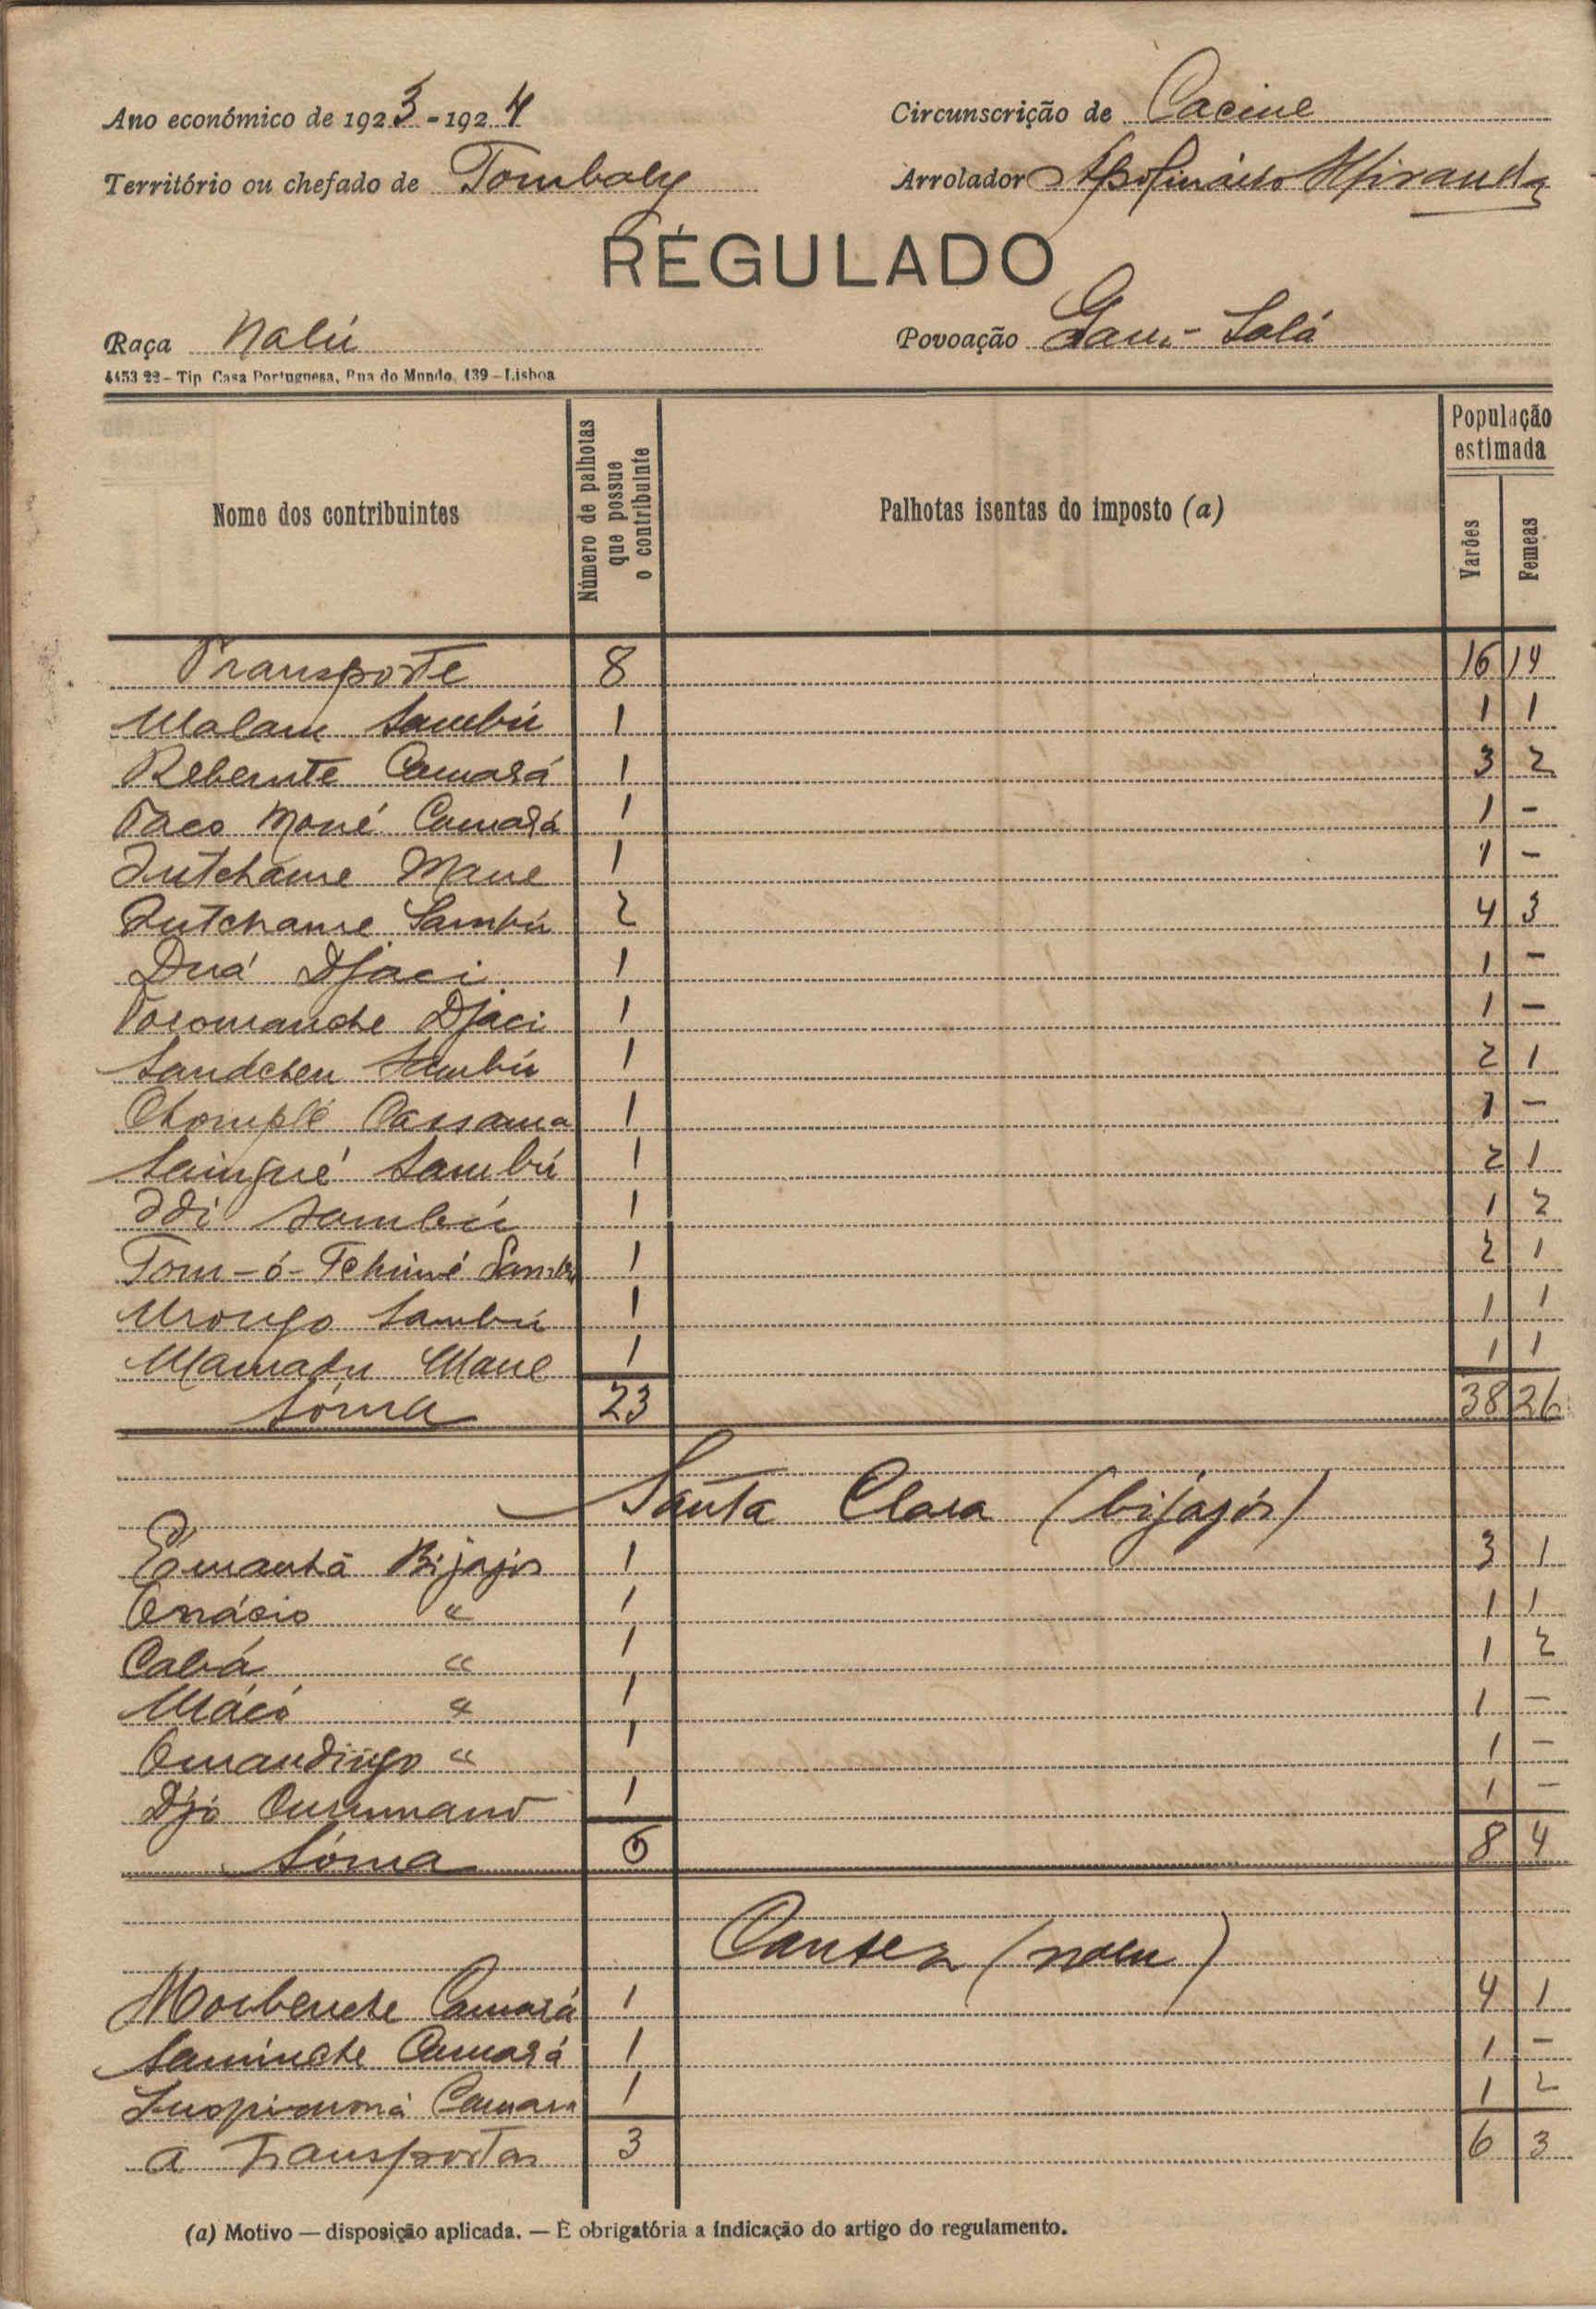 Ano económico de 1923-1924 Circunscrição de Cacine
Território ou chefado de Tombaly Arrolador Apolinário Miranda
RÉGULADO
Raça Nalú Povoação Gam-Salá
4453 22 - Tip. Casa Portuguesa, Rua do Mundo, 139 - Lisboa
Nome dos contribuintes Número de palhotas que possue o contribuinte Palhotas isentas do imposto (a) População estimada Varões Femeas
Transporte 8 16 14
Malam Sambú 1 1 1
Rebente Camará 1 3 2
Taco Moné Camará 1 1 -
Jutchame Mane 1 1 -
Jutchame Sambú 2 4 3
Duá Djaci 1 1 -
Toromanche Djaci 1 1 -
Sandchen Sambú 1 2 1
Chomplé Cassama 1 1 -
Saingué Sambú 1 2 1
Idi Sambú 1 1 2
Tom-ó-Tchimé Sambú 1 2 1
Urongo Sambú 1 1 1
Mamadu Mane 1 1 1
Sóma 23 38 26
Santa Clara (bijagós)
Emanhã Bijagós 1 3 1
Onácio " 1 1 1
Cabá " 1 1 2
Mácó " 1 1 -
Omandingo " 1 1 -
Djó 1 1 -
Sóma 6 8 4
Cantez (nalu)
Morbenche Camará 1 4 1
Saminche Camará 1 1 -
Camara 1 1 2
a Transportar 3 6 3
(a) Motivo — disposição aplicada. — É obrigatória a indicação do artigo do regulamento.